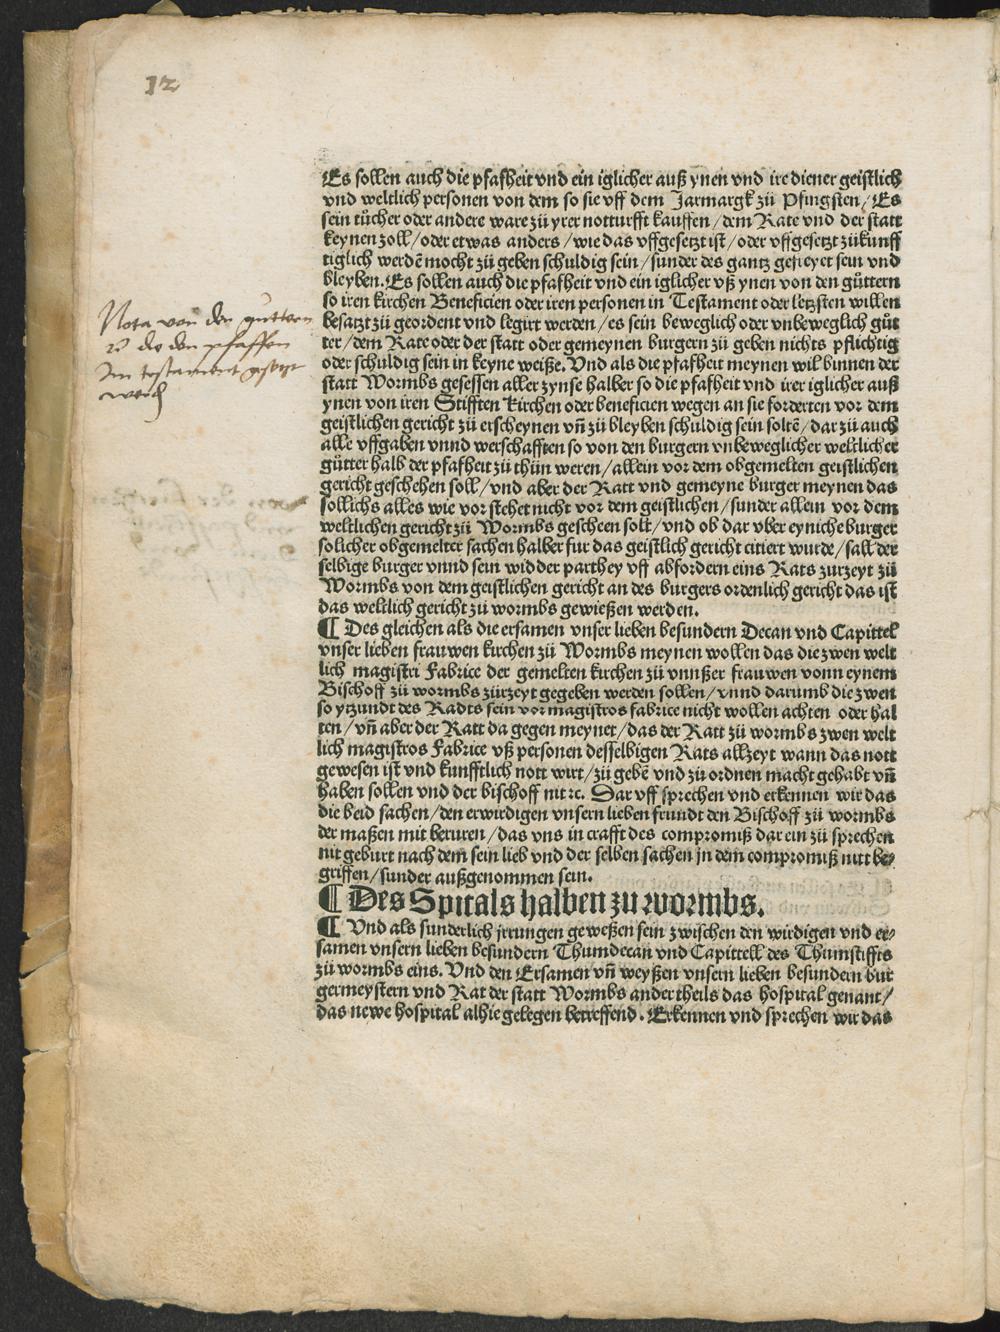 12
Es sollen auch die pfafheit vnd ein iglicher auß ynen vnd ire diener geistlich
vnd weltlich personen von dem so sie vff dem Jarmargk zü Pfingsten / Es
sein tücher oder andere ware zü yrer notturfft kauffen / dem Rate vnd der statt
keynen zoll / oder etwas anders / wie das vffgesetzt ist / oder vffgesetzt zükunff
tiglich werdē mocht zü geben schuldig sein / sunder des gantz gefreyet sein vnd
bleyben. Es sollen auch die pfafheit vnd ein iglicher vß ynen von den güttern
so iren kirchen Beneficien oder iren personen in Testament oder letzsten willen
besatzt zü geordent vnd legirt werden / es sein beweglich oder vnbeweglich güt
ter / dem Rate oder der statt oder gemeynen burgern zü geben nichts pflichtig
oder schuldig sein in keyne weiße. Vnd als die pfafheit meynen wil binnen der
statt Wormbs gesessen aller zynse halber so die pfafheit vnd irer iglicher auß
ynen von iren Stifften kirchen oder beneficien wegen an sie forderten vor dem
geistlichen gericht zü erscheynen vñ zü bleyben schuldig sein soltē / dar zü auch
alle vffgaben vnnd werschafften so von den burgern vnbeweglicher weltlicher
gütter halb der pfafheit zü thün weren / allein vor dem obgemelten geistlichen
gericht geschehen soll / vnd aber der Ratt vnd gemeyne burger meynen das
sollichs alles wie vor stehet nicht vor dem geistlichen / sunder allein vor dem
weltlichen gericht zü Wormbs gescheen solt / vnd ob dar vber eyniche burger
solicher obgemelter sachen halber fur das geistlich gericht citiert wurde / sall der
selbige burger vnnd sein widder parthey vff abfordern eins Rats zurzeyt zü
Wormbs von dem geistlichen gericht an des burgers ordenlich gericht das ist
das weltlich gericht zü wormbs gewießen werden.
¶ Des gleichen als die ersamen vnser lieben besundern Decan vnd Capittel
vnser lieben frauwen kirchen zü Wormbs meynen wollen das die zwen welt
lich magistri Fabrice der gemelten kirchen zü vnnßer frauwen vonn eynem
Bischoff zü wormbs zürzeyt gegeben werden sollen / vnnd darumb die zwen
so ytzundt des Radts sein vor magistros fabrice nicht wollen achten oder hal
ten / vñ aber der Ratt da gegen meynet / das der Ratt zü wormbs zwen welt
lich magistros Fabrice vß personen desselbigen Rats allzeyt wann das nott
gewesen ist vnd kunfftlich nott wirt / zü gebē vnd zü ordnen macht gehabt vñ
haben sollen vnd der bischoff nit ꝛc. Dar vff sprechen vnd erkennen wir das
die beid sachen / den erwirdigen vnsern lieben frundt den Bischoff zü wormbs
der maßen mit beruren / das vns in crafft des compromiß dar ein zü sprechen
nit geburt nach dem sein lieb vnd der selben sachen jn dem compromiß nitt be⸗
griffen / sunder außgenommen sein.
¶ Des Spitals halben zu wormbs.
¶ Vnd als sunderlich jrrungen geweßen sein zwischen den wirdigen vnd er⸗
samen vnsern lieben besundern Thumdecan vnd Capittell des Thumstiffts
zü wormbs eins. Vnd den Ersamen vñ weyßen vnsern lieben besundern bur
germeystern vnd Rat der statt Wormbs ander theils das hospital genant /
das newe hospital alhie gelegen betreffend. Erkennen vnd sprechen wir das
Nota von den guttern
die den pfaffen
Im testament gsetzt